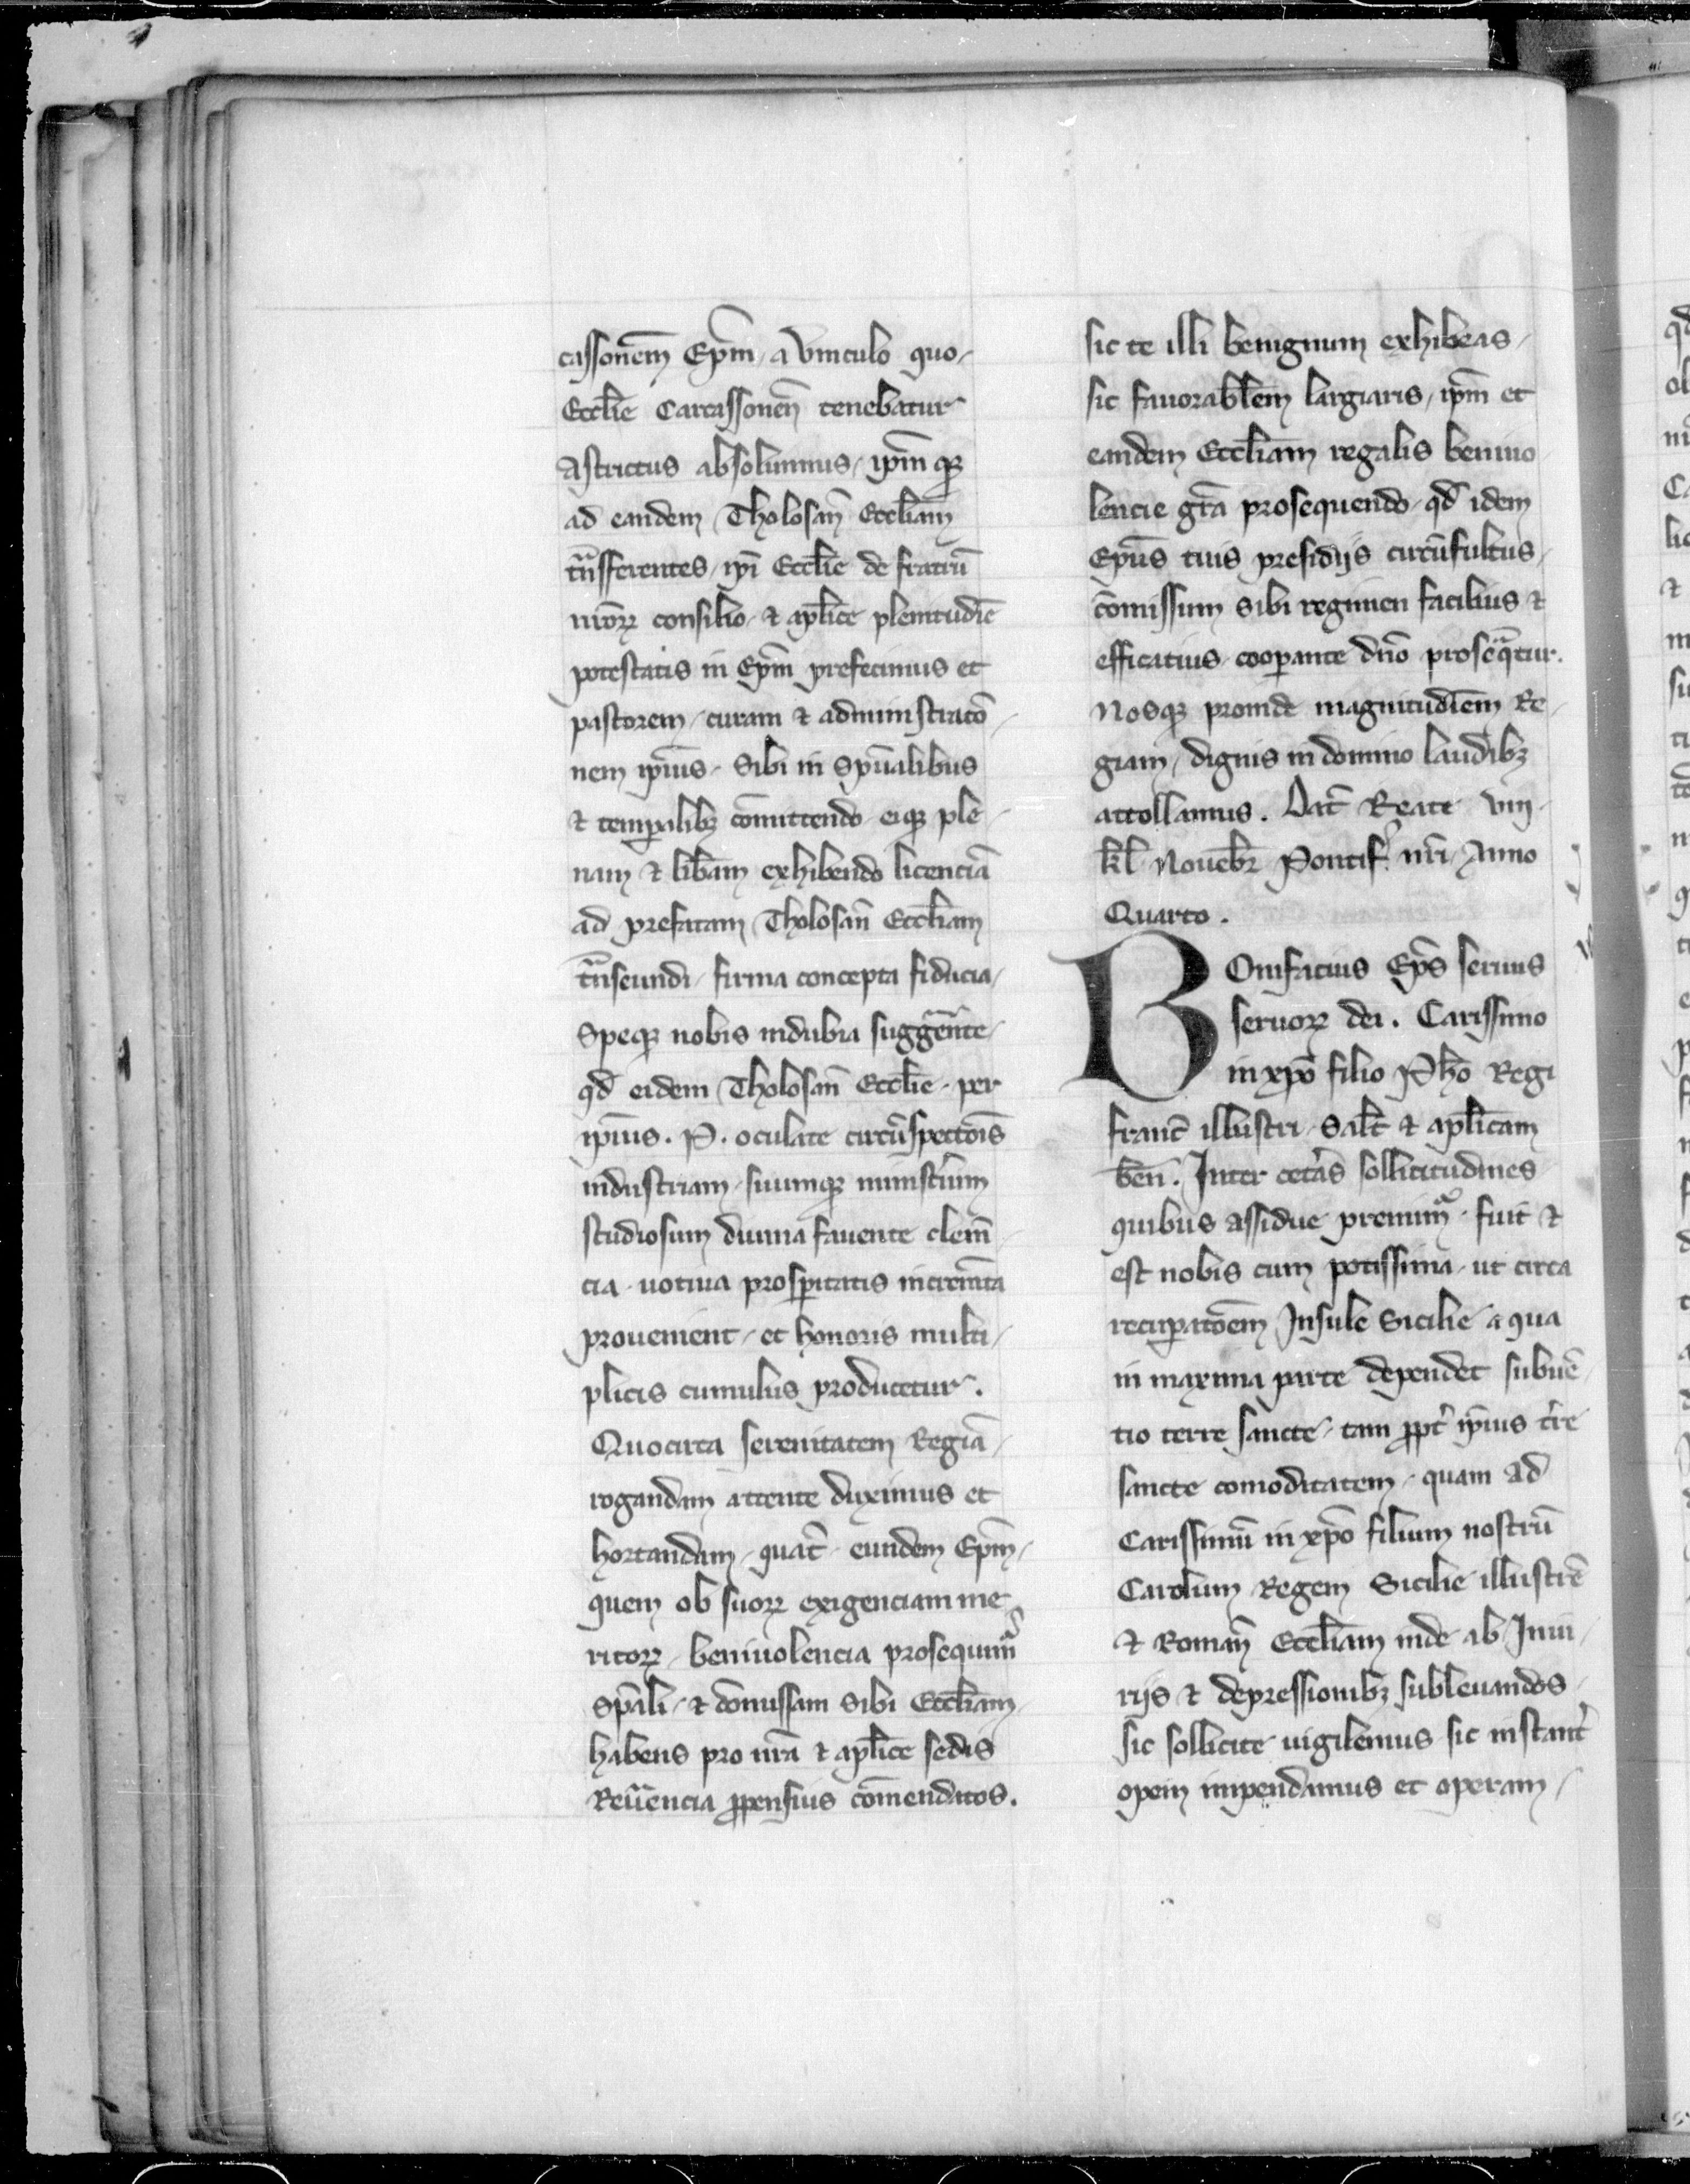 cassoneм̄ Ep̄m, a vinculo quo,
Eccl̄ie Carcassoneñ tenebatur
Astrictus absoluimus, ip̄m qꝫ
ad eandem Tholosan̄ Eccl̄iam
tͣnsferentes, ip̄i Eccl̄ie de fratrū
nr̄oꝝ consilio, ⁊ ap̄lice plenitudīe
potestatis in Ep̄m prefecimus et
pastorem, curam ⁊ administratō,
nem ip̄ius, Sibi in Sp̄ualibus
⁊ temꝑalibꝫ cōmittendo, eiqꝫ ple,
nam ⁊ lib̄am exhibendo licenciā
ad prefatam Tholosan̄ Eccl̄iam
tͣnseundi, firma concepta fiducia,
Speqꝫ nobis indubia sugg̃ente,
qd̄ eidem Tholosan̄ Eccl̄ie, per
ip̄ius .P. oculate circūspectōis
industriam, suumqꝫ minist̃ium
studiosum diuina fauente clem̄,
cia, uotiua prosꝑitatis incrēmta
prouenient, et honoris multi,
plicis cumulus producetur.
Quocirca serenitatem Regiā,
rogandam attente duximus et
hortandam, quat̃ eundem Ep̄m,
quem ob suoꝝ exigenciam me,
ritoꝝ, beniuolencia prosequim᷑
Sp̄ali, ⁊ cōmissam Sibi Eccl̄iam,
habens pro nr̄a ⁊ ap̄lice sedis
Reũencia ꝓpensius cōmendatos.
sic te illi benignum exhibeas,
sic fauorabl̄em largiaris, ip̄m et
eandem Eccl̄iam regalis beniuo
lencie gr̄a prosequendo, qd̄ idem
Ep̄us tuis presidijs circūfultus,
cōmissum sibi regimen facilius ⁊
efficatius cooꝑante dn̄o proseqͣtur.
Nosqꝫ proinde magnitudīem Re,
giam, dignis in domino laudibꝫ
attollamus. Dat̃ Reate viij.
kl̄ Nouēbr̄ Pontif̃ nr̄i, Anno
Quarto.
BOnifacius Ep̄s seruus
seruoꝝ dei. Carissimo
in xp̄o filio Ph̄o Regi
franc̃ illustri, Sal̄t ⁊ ap̄licam
ben̄. Inter cet̃as sollicitudines
quibus assidue premim᷑, fuit ⁊
est nobis cum potissima, ut circa
recuꝑatōem Insule Sicilie a qua
in maxima parte dependet subuē,
tio terre sancte, tam ꝓpt̃ ip̄ius t̃re
sancte comoditatem, quam ad
Carissimū in xp̄o filium nostrū
Carolum Regem Sicilie illustrē
⁊ Roman̄ Eccl̄iam inde ab Iniu,
rijs ⁊ depressionibꝫ subleuandos,
sic sollicite uigilemus sic instant̃
opem impendamus et operam,